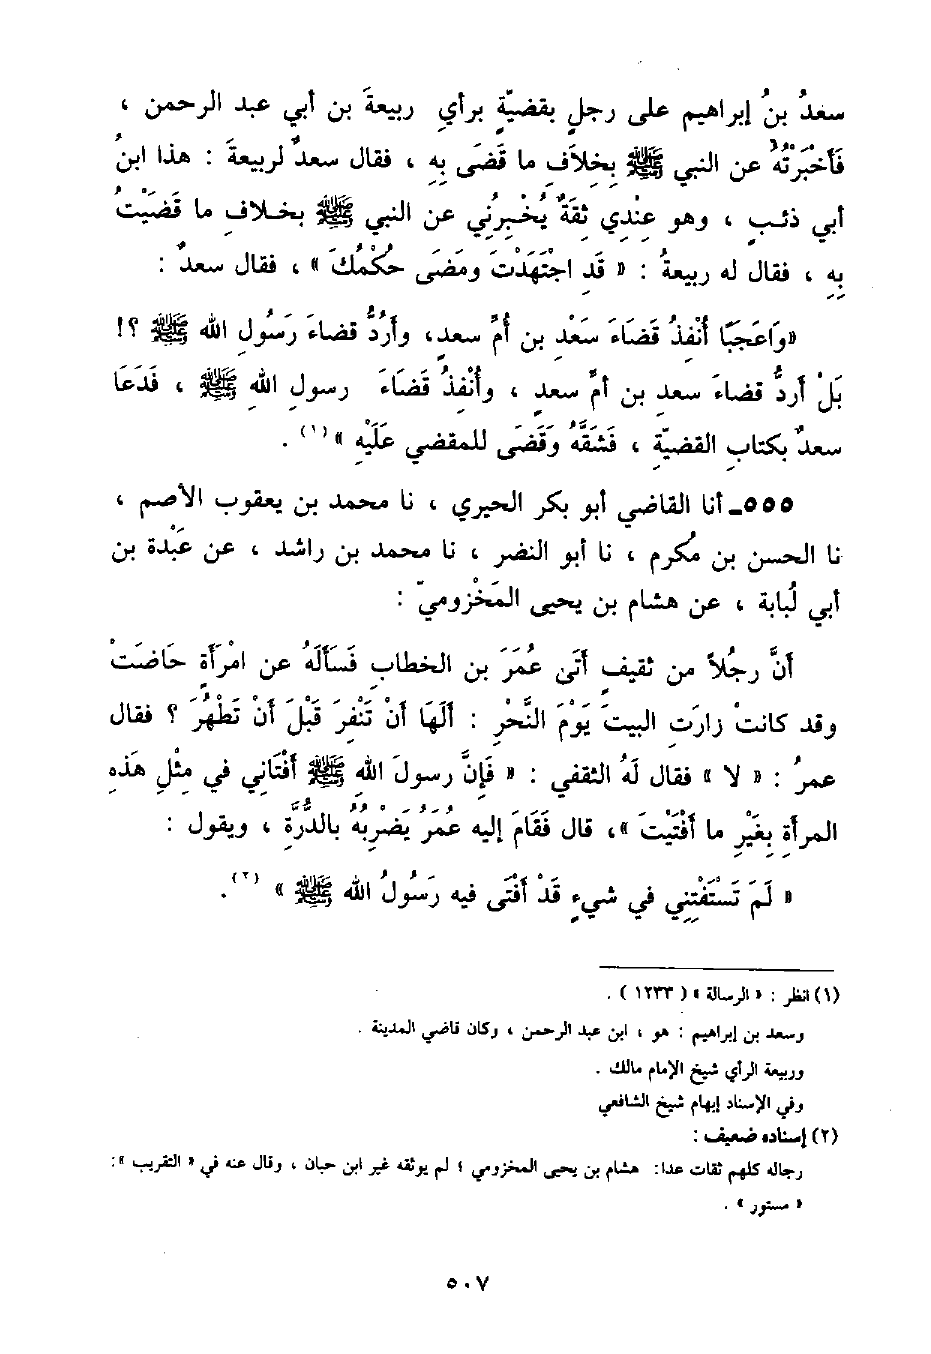 سعدُ بنُ إبراهيم على رجلٍ بقضيّةٍ برأيِ ربيعةَ بن أبي عبد الرحمن ،
فَأَخْبَرْتُهُ عن النبي ﷺ بِخلاَفِ ما قَضَى بِهِ ، فقال سعدٌ لربيعةَ : هذا ابنُ
أبي ذئبٍ ، وهو عِنْدِي ثِقَةٌ يُخْبِرُني عن النبي ﷺ بخلافِ ما قَضَيْتُ
بِهِ ، فقال له ربيعةُ : « قَدِ اجْتَهَدْتَ ومَضَى حُكْمُكَ » ، فقال سعدٌ :
«وَاعَجَبًا أُنْفِذُ قَضَاءَ سَعْدِ بن أُمِّ سعدٍ، وأَرُدُّ قضاءَ رَسُولِ الله ﷺ ؟!
بَلْ أردُّ قضاءَ سعدِ بن أمِّ سعدٍ ، وأُنْفِذُ قَضَاءَ رسولِ اللهِ ﷺ ، فَدَعَا
سعدٌ بكتابِ القضيّةِ ، فَشَقَّهُ وَقَضَى للمقضي عَلَيْهِ » (١) .
٥٥٥ـ أنا القاضي أبو بكر الحيري ، نا محمد بن يعقوب الأصم ،
نا الحسن بن مُكرم ، نا أبو النضر ، نا محمد بن راشد ، عن عَبْدة بن
أبي لُبابة ، عن هشام بن يحيى المَخْزوميّ :
أَنَّ رجُلاً من ثقيفٍ أَتَى عُمَرَ بن الخطابِ فَسَأَلَهُ عن امْرَأَةٍ حَاضَتْ
وقد كانتْ زارَتِ البيتَ يَوْمَ النَّحْرِ : أَلَهَا أَنْ تَنْفِرَ قَبْلَ أَنْ تَطْهُرَ ؟ فقال
عمرُ : « لا » فقال لَهُ الثقفي : « فَإِنَّ رسولَ اللهِ ﷺ أَفْتَاني في مِثْلِ هَذِهِ
المرأَةِ بِغَيْرِ ما أَفْتَيْتَ »، قال فَقَامَ إليه عُمَرُ يَضْرِبُهُ بالدُّرَّةِ ، ويقول :
« لَمَ تَسْتَفْتِنِي في شيءٍ قَدْ أَفْتَى فيه رَسُولُ الله ﷺ » (٢) .
(١) انظر : « الرسالة » ( ١٢٣٣ ) .
وسعد بن إبراهيم : هو ، ابن عبد الرحمن ، وكان قاضي المدينة .
وربيعة الرأي شيخ الإمام مالك .
وفي الإسناد إبهام شيخ الشافعي
(٢) إسناده ضعيف :
رجاله كلهم ثقات عدا: هشام بن يحيى المخزومي ؛ لم يوثقه غير ابن حبان ، وقال عنه في « التقريب »:
« مستور » .
٥٠٧